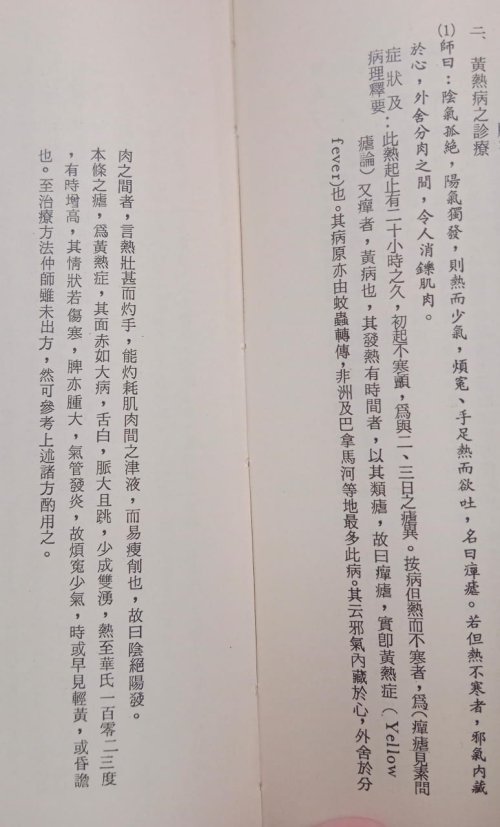 二、黃熱病之診療
(1)師曰：陰氣孤絕，陽氣獨發，則熱而少氣，煩寃、手足熱而欲吐，名曰瘅瘧。若但熱不寒者，邪氣內藏
於心，外舍分肉之間，令人消鑠肌肉。
症狀及
病理釋要：此熱起止有二十小時之久，初起不寒顫，爲與二、三日之瘧異。按病但熱而不寒者，爲（癉瘧見素問
瘧論）又癉者，黃病也，其發熱有時間者，以其類瘧，故曰癉瘧，實卽黃熱症（Yellow
fever)也。其病原亦由蚊蟲轉傳，非洲及巴拿馬河等地最多此病。其云邪氣內藏於心，外舍於分
肉之間者，言熱壯甚而灼手，能灼耗肌肉間之津液，而易瘦削也，故曰陰絕陽發。
本條之瘧，爲黃熱症，其面赤如大病，舌白，脈大且跳，少成雙湧，熱至華氏一百零二三度
，有時增高，其情狀若傷寒，脾亦腫大，氣管發炎，故煩寃少氣，時或早見輕黃，或昏譫
也。至治療方法仲師雖未出方，然可參考上述諸方酌用之。